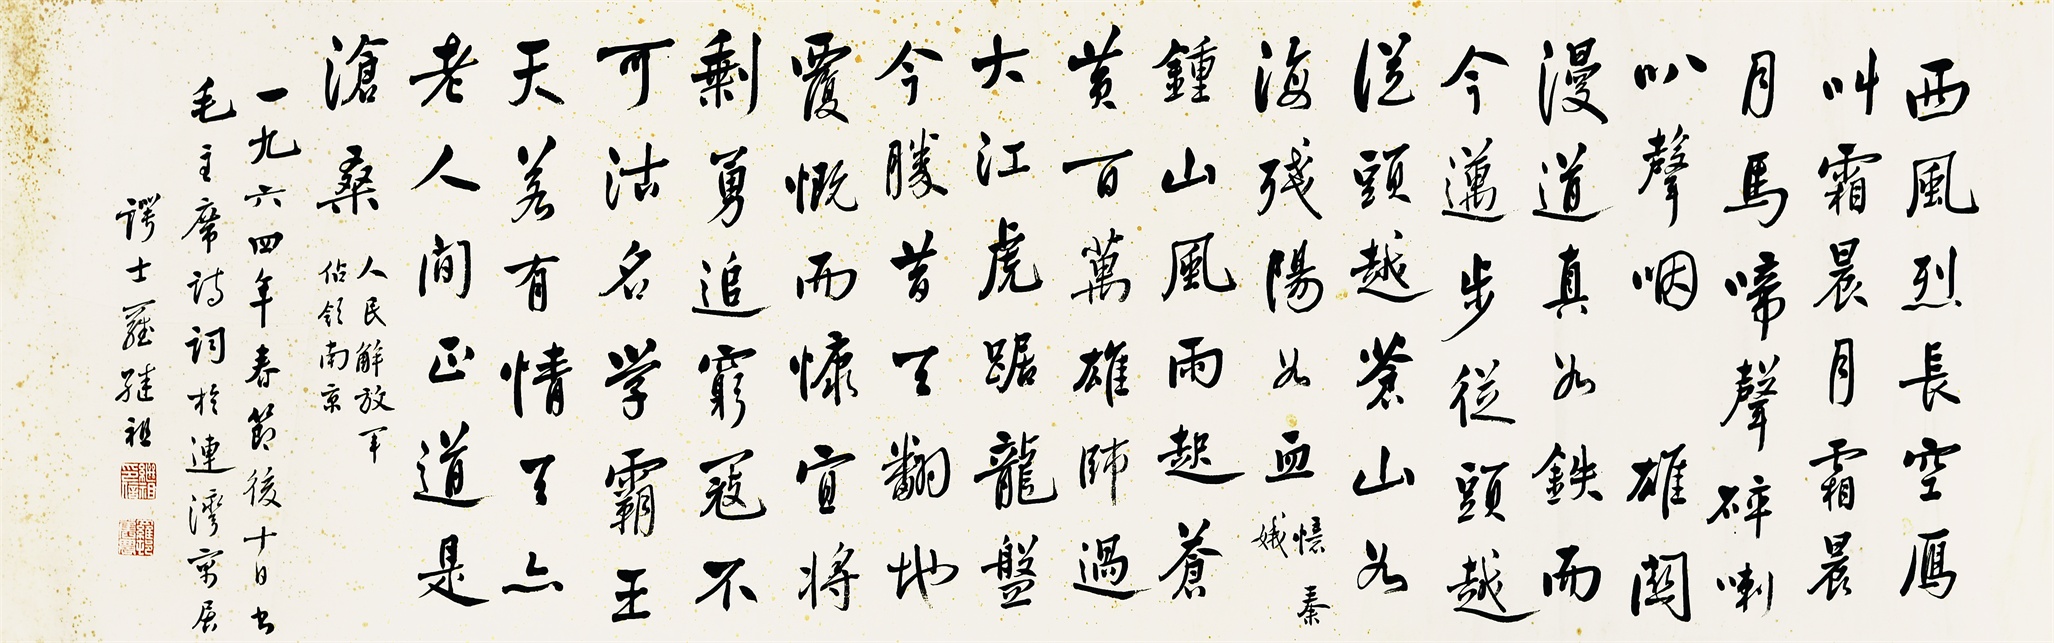 西風烈長空鴈
叫霜晨月霜晨
月馬啼聲碎喇
叭聲咽 雄關
漫道真如鉄而
今邁步従頭越
従頭越蒼山如
海殘陽如血
憶秦
娥
鍾山風雨起蒼
黃百萬雄師過
大江虎踞龍盤
今勝昔天翻地
覆慨而慷宜將
剩勇追窮寇不
可沽名学霸王
天若有情天亦
老人間正道是
滄桑
人民解放军
佔領南京
一九六四年春節後十日书
毛主席詩詞於連灣寓居
諤士羅継祖